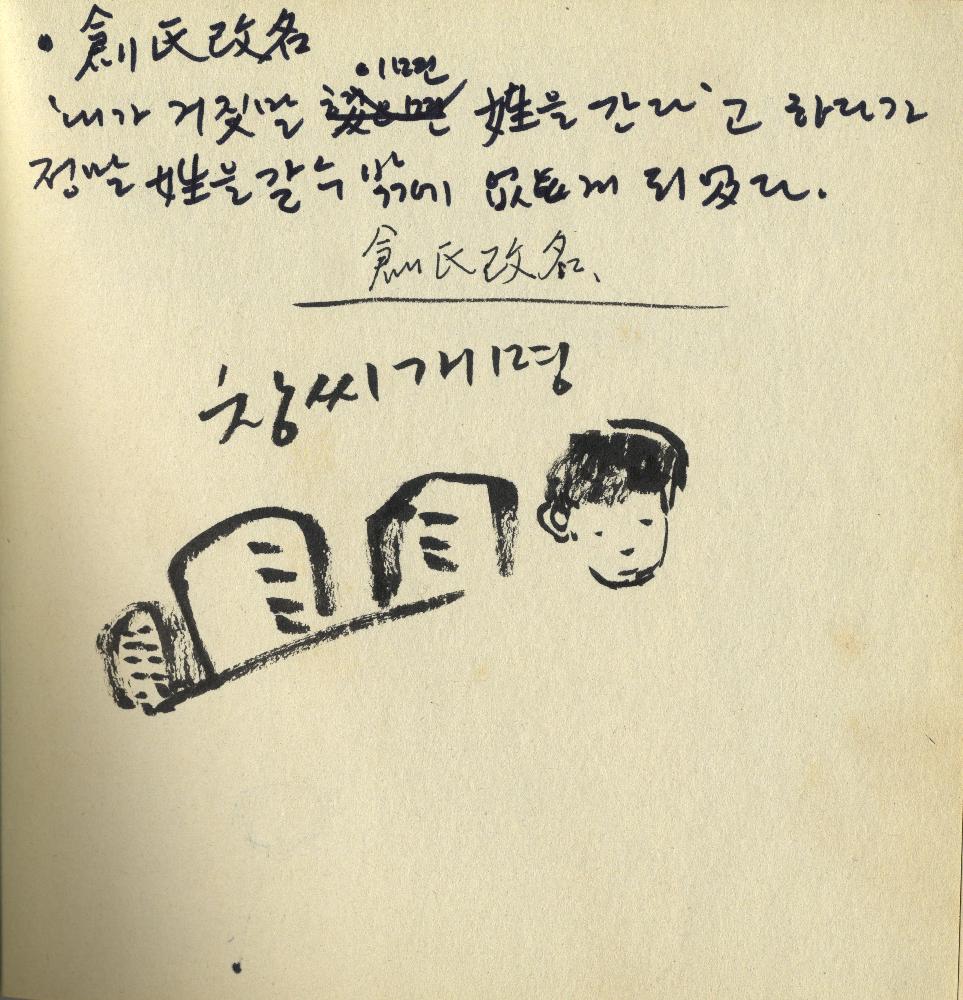 • 創氏改名
이면
'내가 거짓말 姓을 간다'고 하다가
정말 姓을 갈 수 밖에 없게 되었다.
創氏改名.
창씨개명